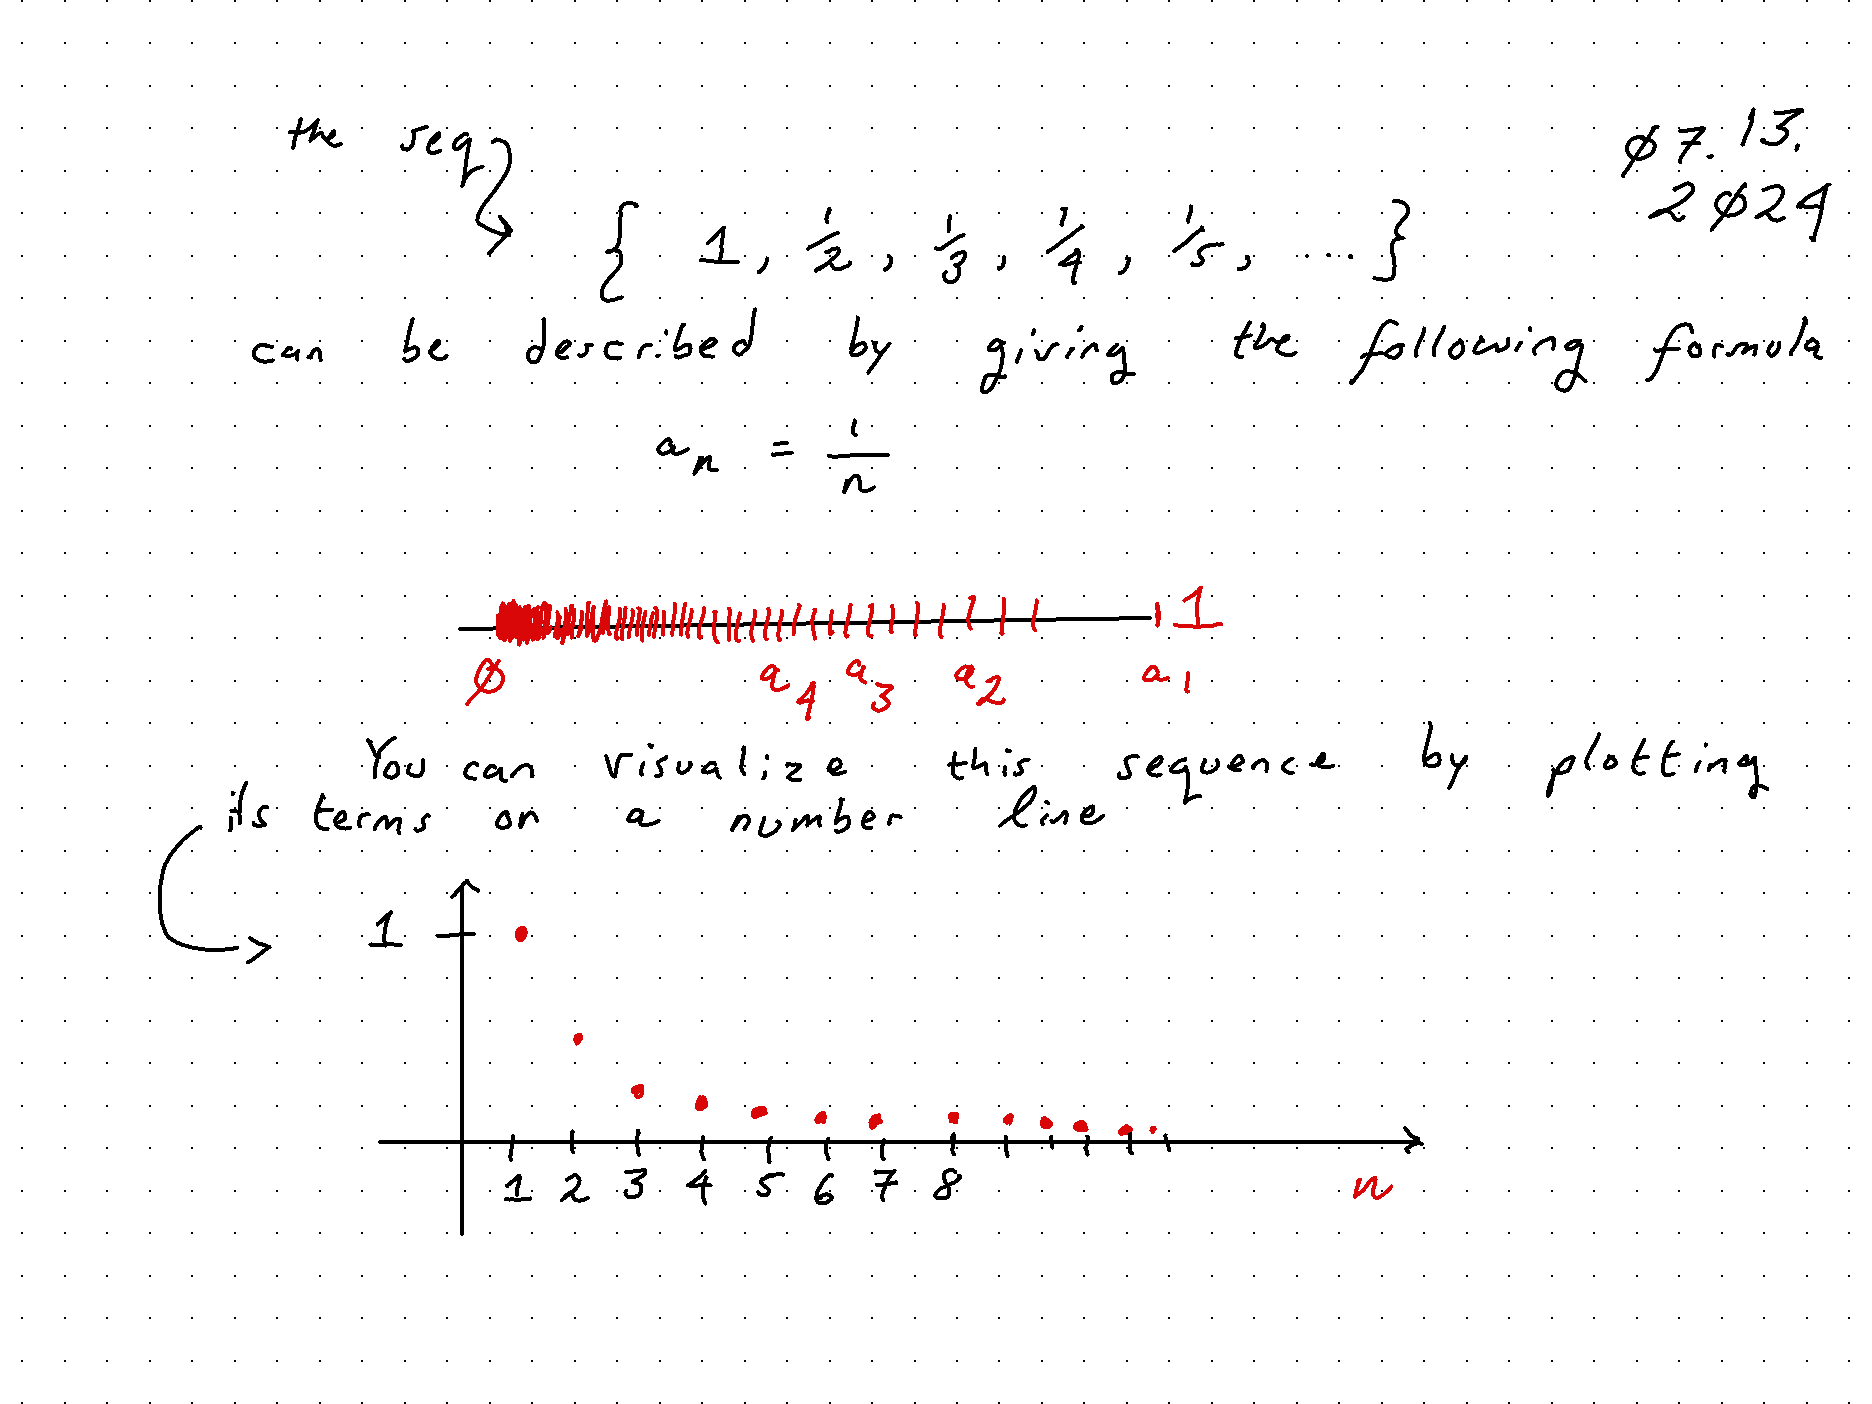 the seq
ø7.13.
2ø24
{ 1, 1/2, 1/3, 1/4, 1/5, ... }
can be described by giving the following formula
a_n = 1/n
1
ø a_4 a_3 a_2 a_1
You can visualize this sequence by plotting
its terms on a number line
1
1 2 3 4 5 6 7 8 n